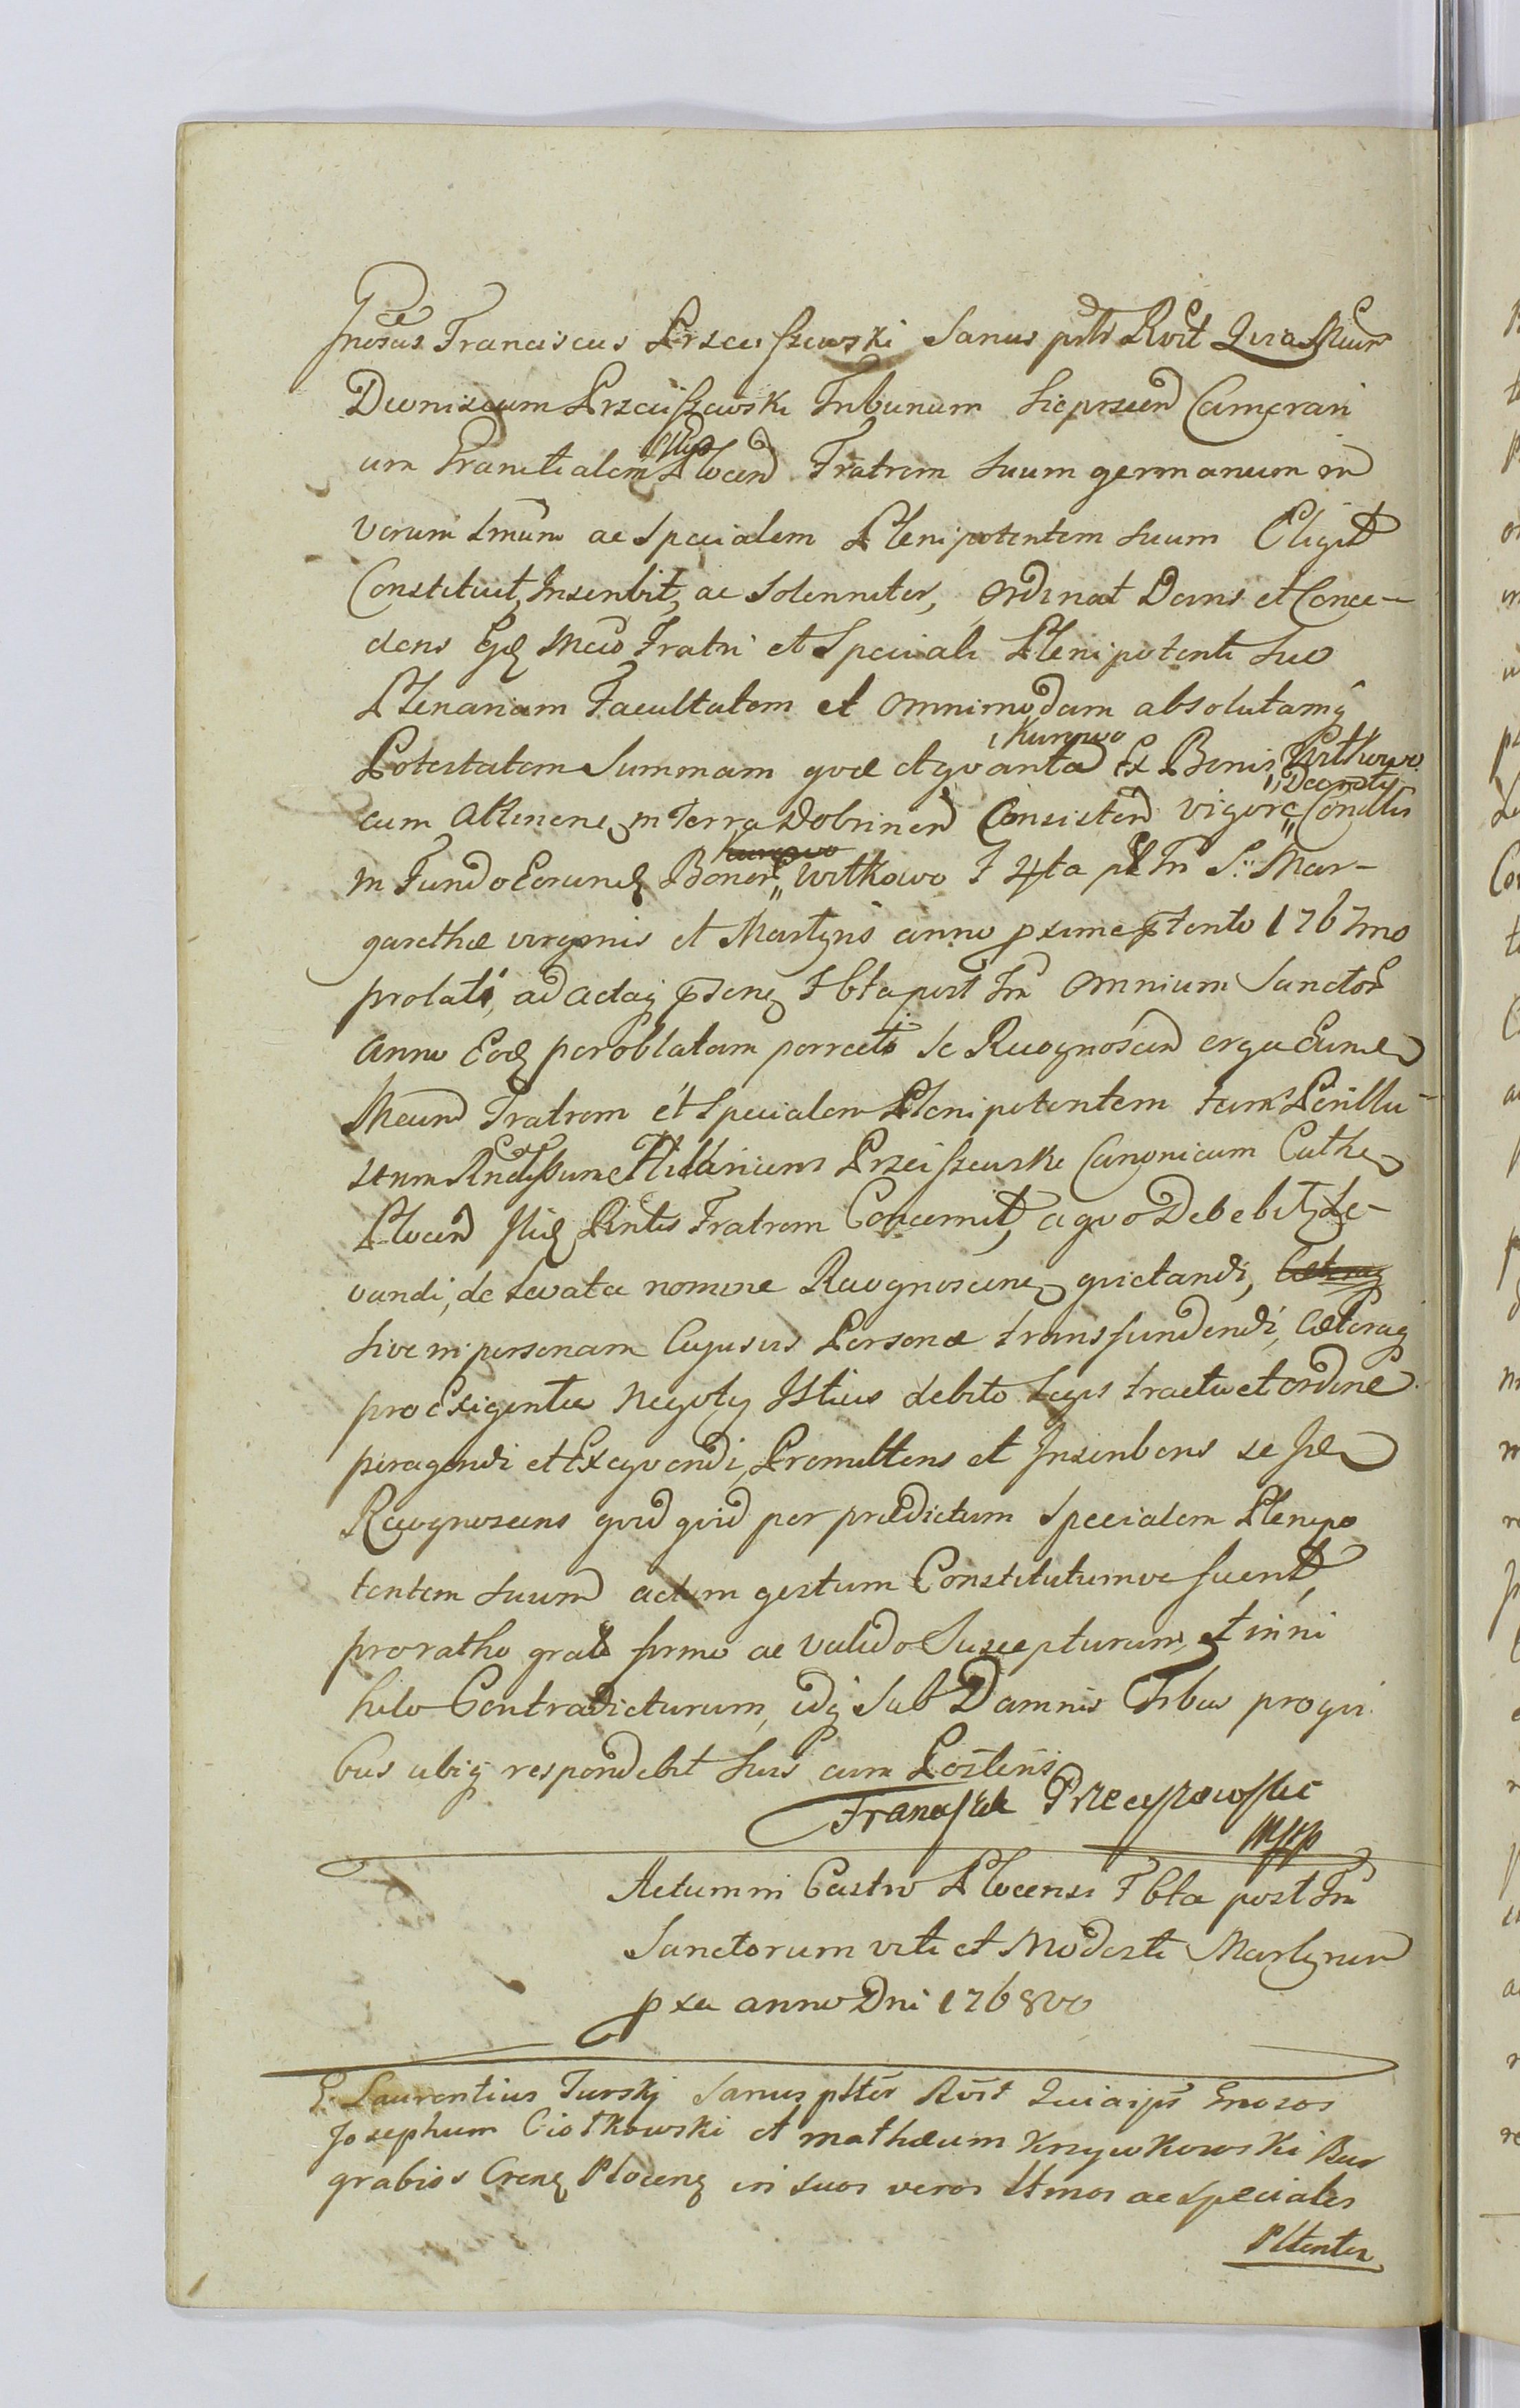 Gnosus Franciscus Przeciszewski Sanus pntr Rvit Quia Mcum
Dionisium Przeciszewski Tribunum Sieprecen Camerari
um Granitialem Plocen Fratrem Suum germanum in
verum Lmum ac Specialem Plenipotentem Suum Eligit
Constituit, Inscribit, ac Solenniter, Ordinat Dans et Conce-
dens Eid Mco Fratri et Speciali Plenipotenti Suo
Plenariam Facultatem et Omnimodam absolutamq
Kurowo
Potestatem Summam quae et quanta Ex Bonis Witkowo
Decreti
cum Attinens in Terra Dobrinen Consisten vigore Condlis
Kurowo
in Fundo Eorund Bonor Witkowo F 4ta pt Fm S. Mar-
garethae virginis et Martyris anno pxime ptento 1767mo
prolati, ad Actaq ptens F 6ta post Fm Omnium Sanctor
Anno Eod per oblatam porrecti Se Recognoscen erga Eund
Mcum Fratrem et Specialem Plenipotentem tum Perillu-
strem Rndssum Hilarium Przeciszewski Canonicum Cathed
Plocen Itid Pintis Fratrem Concernit, a quo Debebit, Le-
vandi, de Levata nomine Recognoscens quietandi, Caeteraq
Sive in personam Cujusvis Personae transfundendi, Caeteraq
pro Exigentia Negotij Istius debito Legis tractu et ordine
peragendi et Exequendi, Promittens et Inscribens se Id
Recognoscens quid quid per praedictum Specialem Plenipo
tentem Suum actum gestum Constitutumve fuerit
pro ratho grato firmo ac valido Suscepturum, et in ni
hilo Contradicturum, idq Sub Damnis Trbus pro qui
bus ubiq respondebit Suis cum Postteris
Franciszek Przeciszewski
mpp
Actum in Castro Plocensi F 6ta post Fm
Sanctorum viti et Modesti Martyrum
pxa anno Dni 1768vo
G. Laurentius Turskj Sanus pltér Rvit Quia ips Gnosos
Josephum Ciotkowski et mathaeum Krzywkowski Bur
grabios Crens Plocens in suos veros Ltmos ac speciales
Pltentes